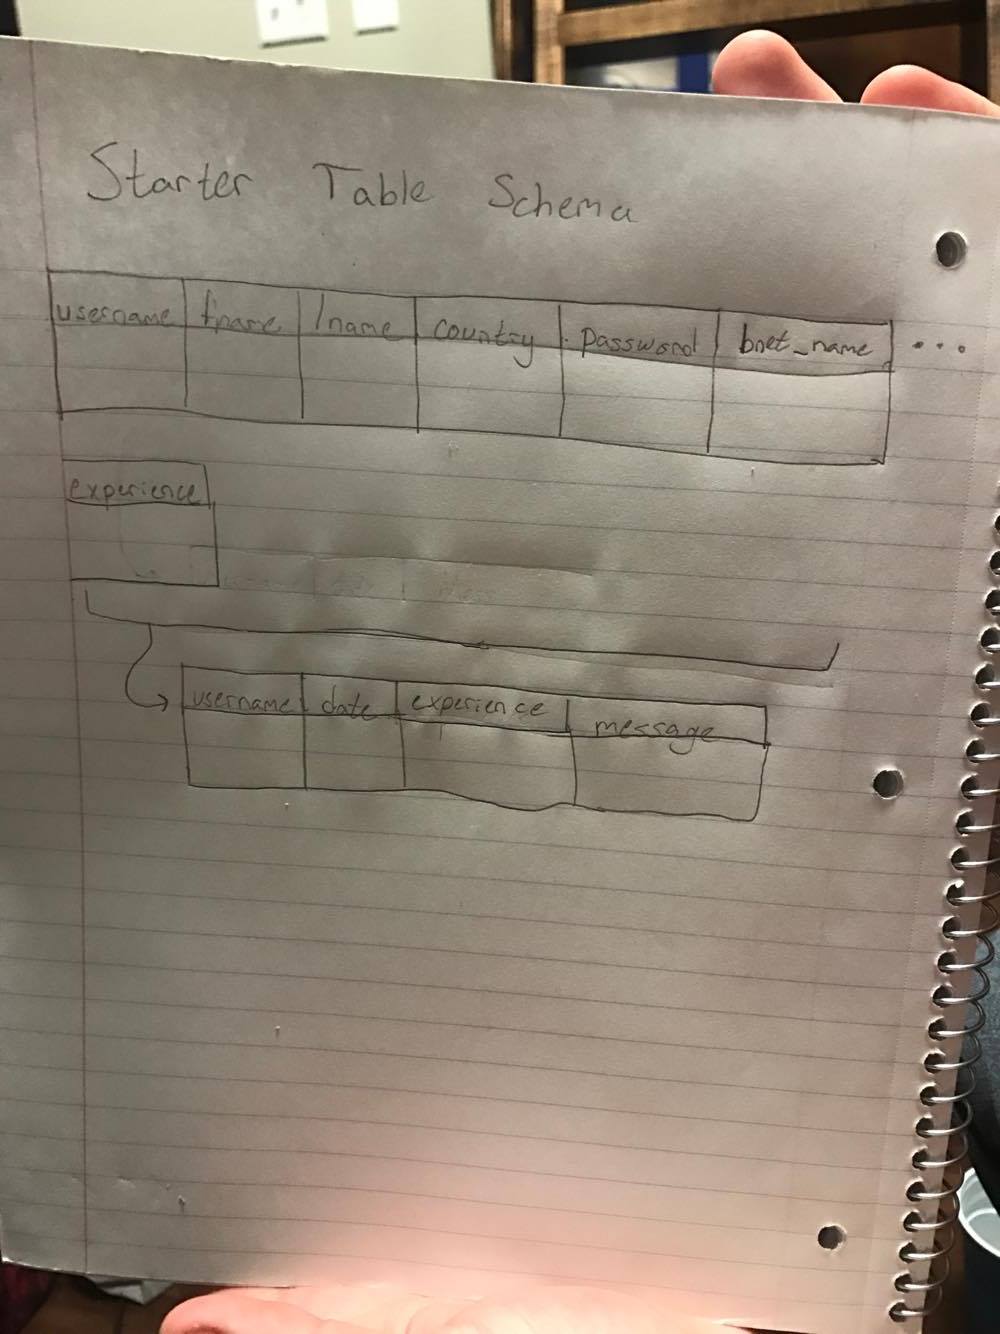 Starter Table Schema
username fname lname country password bnet_name ...
experience
username date experience message